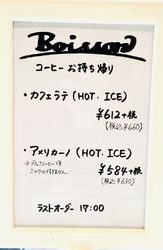 Boisson
コーヒー お持ち帰り
・カフェラテ (HOT・ICE)
¥612+税
(税込¥660)
・アメリカーノ (HOT・ICE)
¥584+税
(税込¥630)
ラストオーダー 17:00